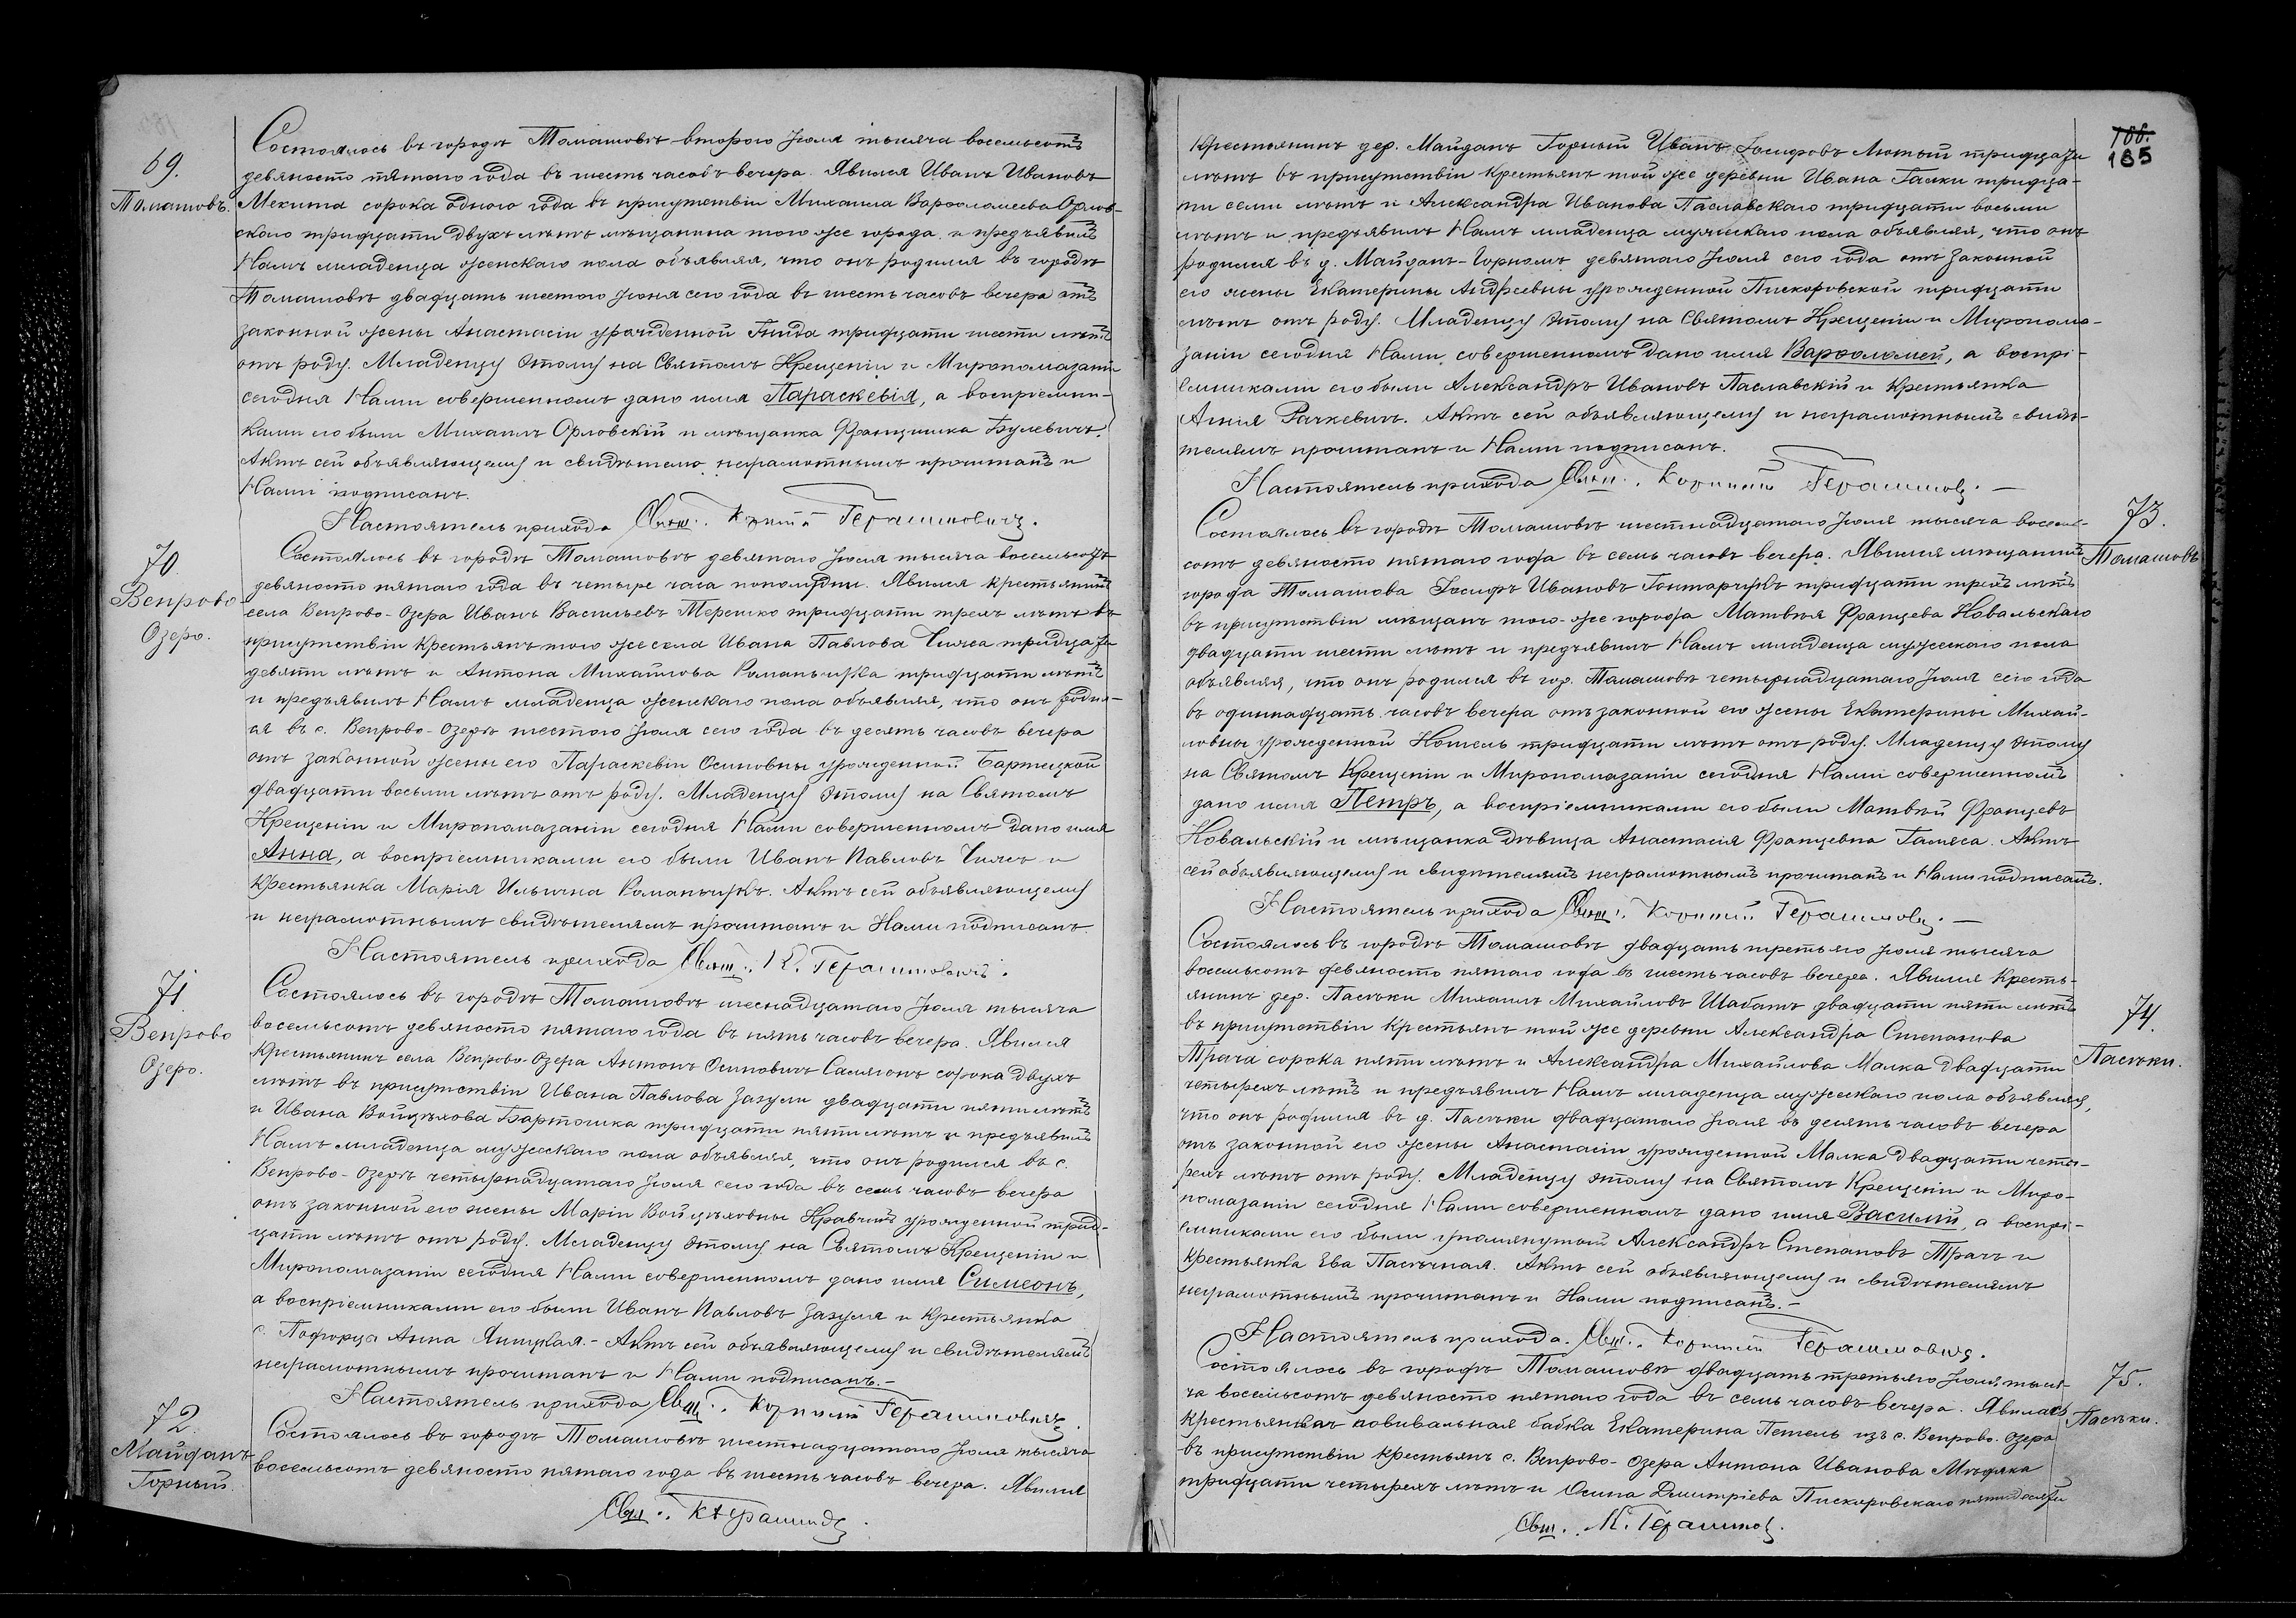 69.
Томашовъ.
Состоялось въ городѣ Томашовѣ второго Іюля тысяча восемьсотъ
девяносто пятаго года въ шесть часовъ вечера. Явился Иванъ Ивановъ
Мекита сорока одного года въ присутствіи Михаила Варѳоломеева Орлов-
скаго тридцати двухъ лѣтъ мѣщанина того же города и предъявилъ
Намъ младенца женскаго пола объявляя, что онъ родился въ городѣ
Томашовѣ двадцать шестого Іюня сего года въ шесть часовъ вечера отъ
законной жены Анастасіи урожденной Гнида тридцати шести лѣтъ
отъ роду. Младенцу этому на Святомъ Крещеніи и Миропомазаніи
сегодня Нами совершенномъ дано имя Параскевія, а воспріемни-
ками его были Михаилъ Орловскій и мѣщанка Францишка Булевичъ.
Актъ сей объявляющему и свидѣтелю неграмотнымъ прочитанъ и
Нами подписанъ.
Настоятель прихода Свящ. Корнилій Герашимовичъ.
70.
Вепрово-
Озеро.
Состоялось въ городѣ Томашовѣ девятаго Іюля тысяча восемьсотъ
девяносто пятаго года въ четыре часа пополудни. Явился крестьянинъ
села Вепрово-Озера Иванъ Васильевъ Терешко тридцати трехъ лѣтъ въ
присутствіи крестьянъ того же села Ивана Павлова Чижа тридцати
девяти лѣтъ и Антона Михайлова Романчука тридцати лѣтъ
и предъявилъ Намъ младенца женскаго пола объявляя, что онъ родил-
ся въ с. Вепрово-Озерѣ шестого Іюля сего года въ десять часовъ вечера
отъ законной жены его Параскевіи Осиповны урожденной Бартецкой
двадцати восьми лѣтъ отъ роду. Младенцу этому на Святомъ
Крещеніи и Миропомазаніи сегодня Нами совершенномъ дано имя
Анна, а воспріемниками его были Иванъ Павловъ Чижъ и
крестьянка Марія Ильична Романчукъ. Актъ сей объявляющему
и неграмотнымъ свидѣтелямъ прочитанъ и Нами подписанъ.
Настоятель прихода Свящ. К. Герашимовичъ.
71.
Вепрово
Озеро.
Состоялось въ городѣ Томашовѣ шеснадцатаго Іюля тысяча
восемьсотъ девяносто пятаго года въ пять часовъ вечера. Явился
крестьянинъ села Вепрово-Озера Антонъ Осиповичъ Самлюнъ сорока двухъ
лѣтъ въ присутствіи Ивана Павлова Зазули двадцати пяти лѣтъ
и Ивана Войцѣхова Бартошика тридцати пяти лѣтъ и предъявилъ
Намъ младенца мужскаго пола объявляя, что онъ родился въ с.
Вепрово-Озерѣ четырнадцатаго Іюля сего года въ семь часовъ вечера
отъ законной его жены Маріи Войцѣховны Кравчикъ урожденной трид-
цати лѣтъ отъ роду. Младенцу этому на Святомъ Крещеніи и
Миропомазаніи сегодня Нами совершенномъ дано имя Симеонъ,
а воспріемниками его были Иванъ Павловъ Зазуля и крестьянка
с. Подгорца Анна Яницкая.- Актъ сей объявляющему и свидѣтелямъ
неграмотнымъ прочитанъ и Нами подписанъ.-
Настоятель прихода Свящ. Корнилій Герашимовичъ.
72.
Майданъ
Горный.
Состоялось въ городѣ Томашовѣ шестнадцатаго Іюля тысяча
восемьсотъ девяносто пятаго года въ шесть часовъ вечера. Явился
Свящ. К. Герашимов
188.
185
крестьянинъ дер. Майданъ Горный Иванъ Іосифовъ Лютый тридцати
лѣтъ въ присутствіи крестьянъ той же деревни Ивана Галки тридца-
ти семи лѣтъ и Александра Иванова Паславскаго тридцати восьми
лѣтъ и предъявилъ Намъ младенца мужскаго пола объявляя, что онъ
родился въ д. Майданъ-Горномъ девятаго Іюля сего года отъ законной
его жены Екатерины Андреевны урожденной Пискоровской тридцати
лѣтъ отъ роду. Младенцу этому на Святомъ Крещеніи и Миропома-
заніи сегодня Нами совершенномъ дано имя Варѳоломей, а воспрі-
емниками его были Александръ Ивановъ Паславскій и крестьянка
Анна Рачкевичъ. Актъ сей объявляющему и неграмотнымъ свидѣ-
телямъ прочитанъ и Нами подписанъ.
Настоятель прихода Свящ. Корнилій Герашимов. —
73.
Томашовъ
Состоялось въ городѣ Томашовѣ шестнадцатаго Іюля тысяча восемь-
сотъ девяносто пятаго года въ семь часовъ вечера. Явился мѣщанинъ
города Томашова Іосифъ Ивановъ Гонтарчукъ тридцати трехъ лѣтъ
въ присутствіи мѣщанъ того-же города Матвѣя Францева Новальскаго
двадцати шести лѣтъ и предъявилъ Намъ младенца мужескаго пола
объявляя, что онъ родился въ гор. Томашовѣ четырнадцатаго Іюля сего года
въ одиннадцать часовъ вечера отъ законной его жены Екатерины Михай-
ловны урожденной Котель тридцати лѣтъ отъ роду. Младенцу этому
на Святомъ Крещеніи и Миропомазаніи сегодня Нами совершенномъ
дано имя Петръ, а воспріемниками его были Матвѣй Францевъ
Новальскій и мѣщанка дѣвица Анастасія Францевна Галяса. Актъ
сей объявляющему и свидѣтелямъ неграмотнымъ прочитанъ и Нами подписанъ.
Настоятель прихода Свящ. Корнилій Герашимов. —
74.
Пасѣки.
Состоялось въ городѣ Томашовѣ двадцать третьяго Іюля тысяча
восемьсотъ девяносто пятаго года въ шесть часовъ вечера. Явился кресть-
янинъ дер. Пасѣки Михаилъ Михайловъ Шабатъ двадцати пяти лѣтъ
въ присутствіи крестьянъ той же деревни Александра Степанова
Трача сорока пяти лѣтъ и Александра Михайлова Малка двадцати
четырехъ лѣтъ и предъявилъ Намъ младенца мужескаго пола объявляя,
что онъ родился въ д. Пасѣки двадцатаго Іюля въ десять часовъ вечера
отъ законной его жены Анастасіи урожденной Малка двадцати четы-
рехъ лѣтъ отъ роду. Младенцу этому на Святомъ Крещеніи и Миро-
помазаніи сегодня Нами совершенномъ дано имя Василій, а воспрі-
емниками его были упомянутый Александръ Степановъ Трачъ и
крестьянка Ева Пасѣчная. Актъ сей объявляющему и свидѣтелямъ
неграмотнымъ прочитанъ и Нами подписанъ.-
Настоятель прихода. Свящ. Корнилій Герашимовичъ.
75.
Пасѣки.
Состоялось въ городѣ Томашовѣ двадцать третьяго Іюля тыся-
ча восемьсотъ девяносто пятаго года въ семь часовъ вечера. Явилась
крестьянка повивальная бабка Екатерина Петель изъ с. Вепрово-Озера
въ присутствіи крестьянъ с. Вепрово-Озера Антона Иванова Мѣдяка
тридцати четырехъ лѣтъ и Осипа Дмитріева Пискоровскаго пятидесяти
Свящ. К. Герашимов.